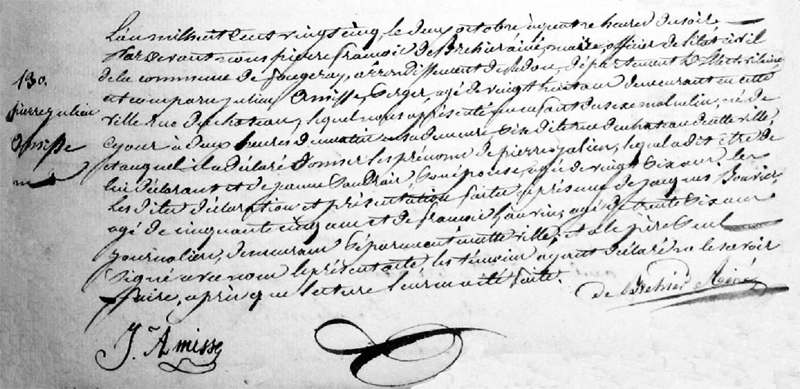 L'an mil huit cent vingt cinq le deux octobre à quatre heures du soir
Pardevant nous pierre françois de Bréhier ainé, maire, officier de l'état civil
de la commune de fougeray, arrondissement de Redon, département d'Ille et vilaine
130.
est comparu julien Amisse, agé de vingt huit ans demeurant en cette
pierre julien
ville rue du chateau, lequel nous a présenté un enfant du sexe masculin, né de
Amisse
ce jour à deux heures du matin en sa demeure sise dite rue du chateau de cette ville,
et auquel il a déclaré donner les prénoms de pierre julien, lequel a dit être de
lui déclarant et de jeanne son épouse, agée de vingt six ans les
Les dites déclaration et présentation faites en présence de jacques Bouvier
agé de cinquante cinq ans et de françois agé de trente six ans
journaliers, demeurant séparément en cette ville, et a le père seul
signé avec nous le présent acte les témoins ayant déclaré ne le savoir
faire, après que lecture leur en a été faite.
de Bréhier Ainé
J.n Amisse